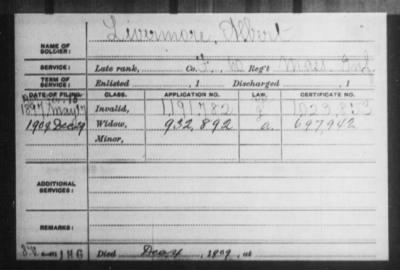 Livermore, Albert
NAME OF SOLDIER:
SERVICE: Late rank, Co. F, 60 Reg't Mass. Inf.
TERM OF SERVICE: Enlisted , 1 Discharged , 1
DATE OF FILING. CLASS. APPLICATION NO. LAW. CERTIFICATE NO.
1897 May Invalid, 1191782 1023,813
1909 Dec 29 Widow, 932,892 a. 697942
Minor,
ADDITIONAL SERVICES:
REMARKS:
Died Dec 7, 1909, at